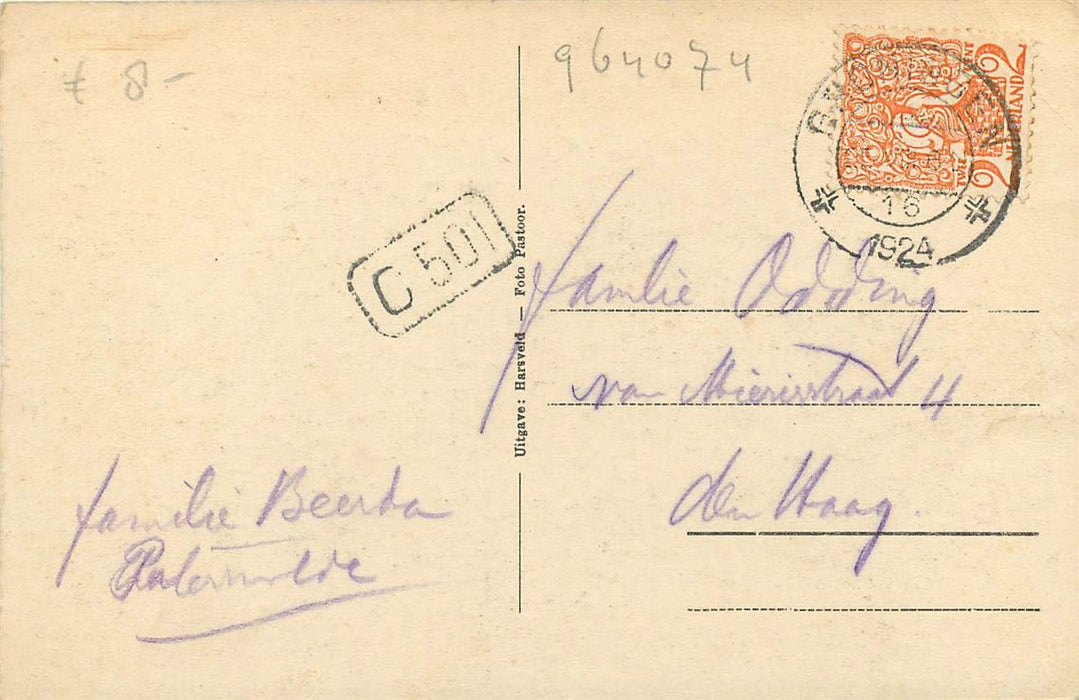 € 8-
964074
1924
16
C 501
Uitgave: Harsveld — Foto Pastoor.
familie Odding
van Mierisstraat 4
den Haag.
familie Beerta
Paterswolde